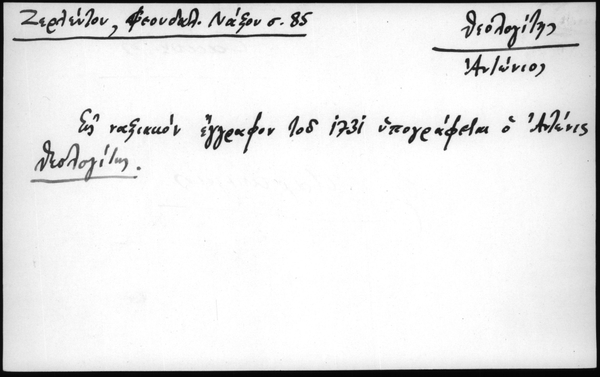 Ζερλέντου, Φεουδαλ. Νάξου σ. 85
Θεολογίτης
Ἀντώνιος
Εἰς ναξιακόν ἔγγραφον τοῦ 1731 ὑπογράφεται ὁ Ἀντώνις
Θεολογίτης.